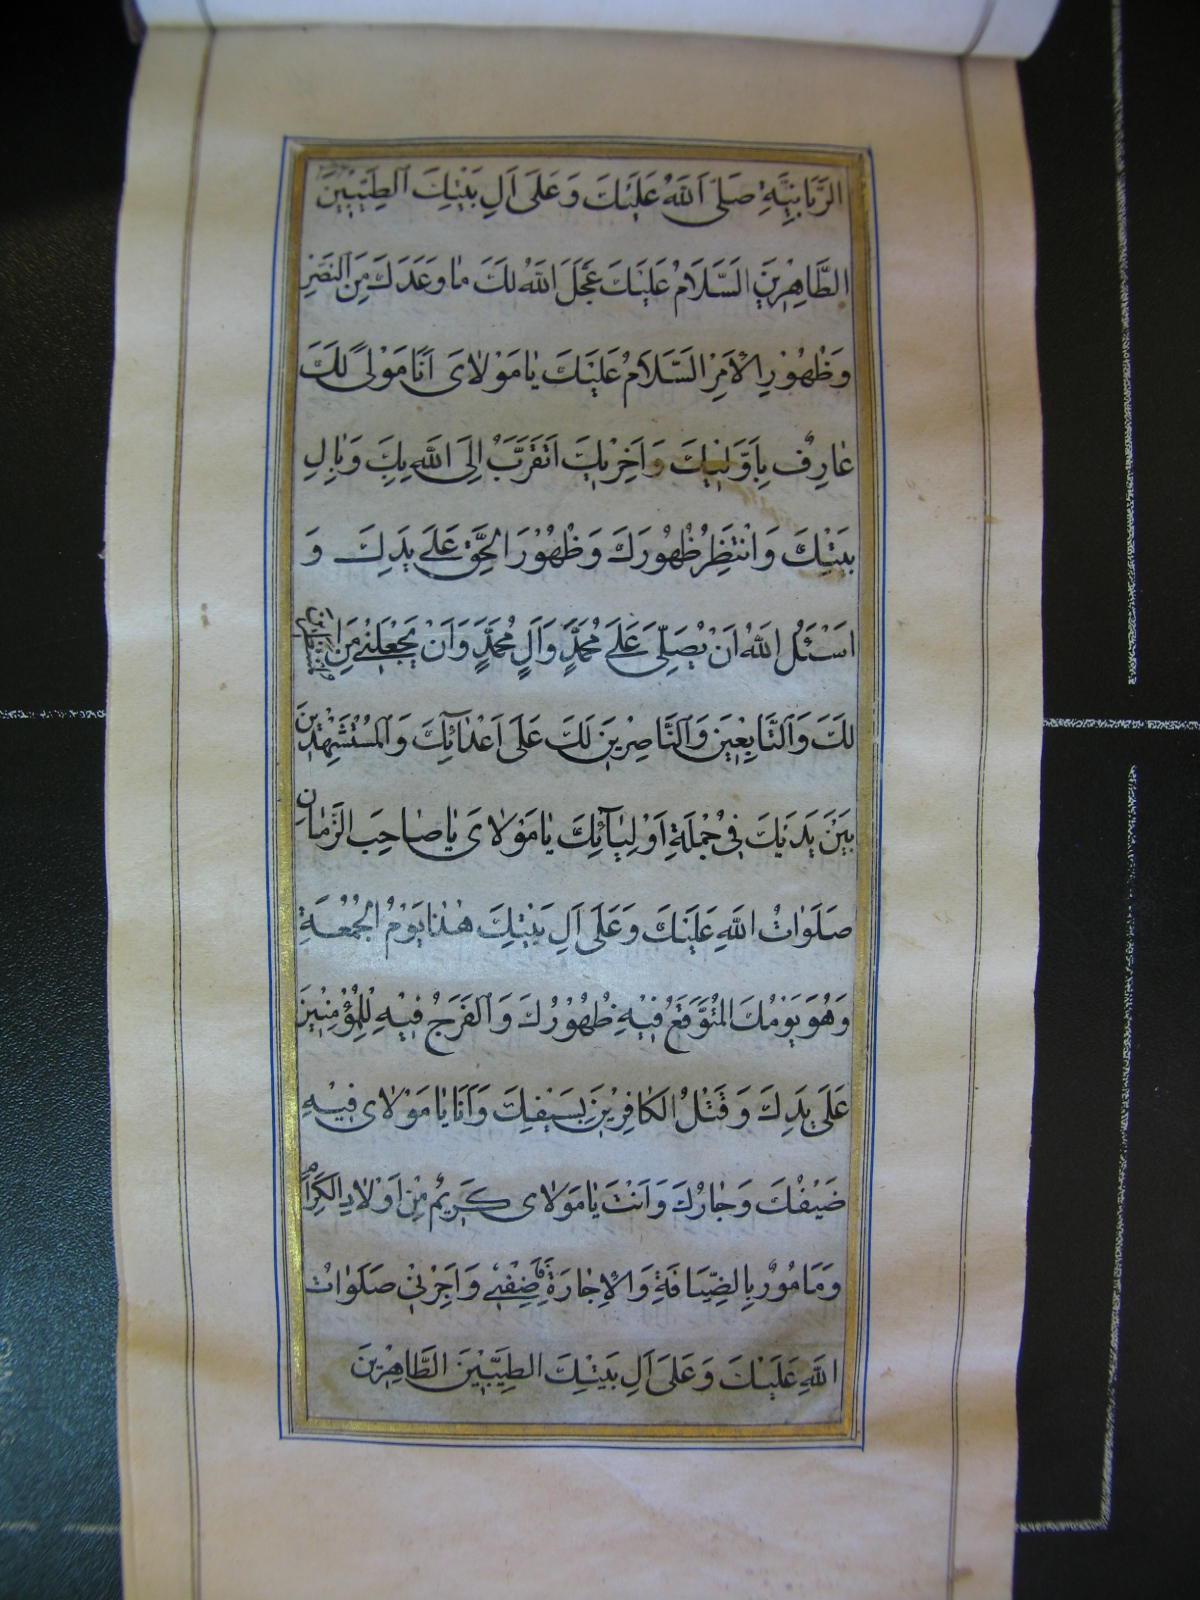 الرَّبَّانِيَّةِ صَلَّى اللهُ عَلَيْكَ وَعَلَى آلِ بَيْتِكَ الطَّيِّبِيْنَ
الطَّاهِرِيْنَ السَّلَامُ عَلَيْكَ عَجَّلَ اللهُ لَكَ مَا وَعَدَكَ مِنَ النَّصْرِ
وَظُهُوْرِ الْاَمْرِ السَّلَامُ عَلَيْكَ يَا مَوْلَايَ اَنَا مَوْلًى لَكَ
عَارِفٌ بِاُوْلَيٰكَ وَاُخْرٰيكَ اَتَقَرَّبُ اِلَى اللهِ بِكَ وَبِاٰلِ
بَيْتِكَ وَانْتَظِرُ ظُهُوْرَكَ وَظُهُوْرَ الْحَقِّ عَلَى يَدِكَ وَ
اَسْئَلُ اللهَ اَنْ يُصَلِّيَ عَلَى مُحَمَّدٍ وَآلِ مُحَمَّدٍ وَاَنْ يَجْعَلَنِيْ مِنَ الْمُنْتَظِرِيْنَ
لَكَ وَالتَّابِعِيْنَ وَالنَّاصِرِيْنَ لَكَ عَلَى اَعْدَآئِكَ وَالْمُسْتَشْهَدِيْنَ
بَيْنَ يَدَيْكَ فِيْ جُمْلَةِ اَوْلِيَآئِكَ يَا مَوْلَايَ يَا صَاحِبَ الزَّمَانِ
صَلَوَاتُ اللهِ عَلَيْكَ وَعَلَى آلِ بَيْتِكَ هٰذَا يَوْمُ الْجُمُعَةِ
وَهُوَ يَوْمُكَ الْمُتَوَقَّعُ فِيْهِ ظُهُوْرُكَ وَالْفَرَجُ فِيْهِ لِلْمُؤْمِنِيْنَ
عَلَى يَدِكَ وَقَتْلُ الْكَافِرِيْنَ بِسَيْفِكَ وَاَنَا يَا مَوْلَايَ فِيْهِ
ضَيْفُكَ وَجَارُكَ وَاَنْتَ يَا مَوْلَايَ كَرِيْمٌ مِنْ اَوْلَادِ الْكِرَامِ
وَمَأمُوْرٌ بِالضِّيَافَةِ وَالْاِجَارَةِ فَاَضِفْنِيْ وَاَجِرْنِيْ صَلَوَاتُ
اللهِ عَلَيْكَ وَعَلَى آلِ بَيْتِكَ الطَّيِّبِيْنَ الطَّاهِرِيْنَ